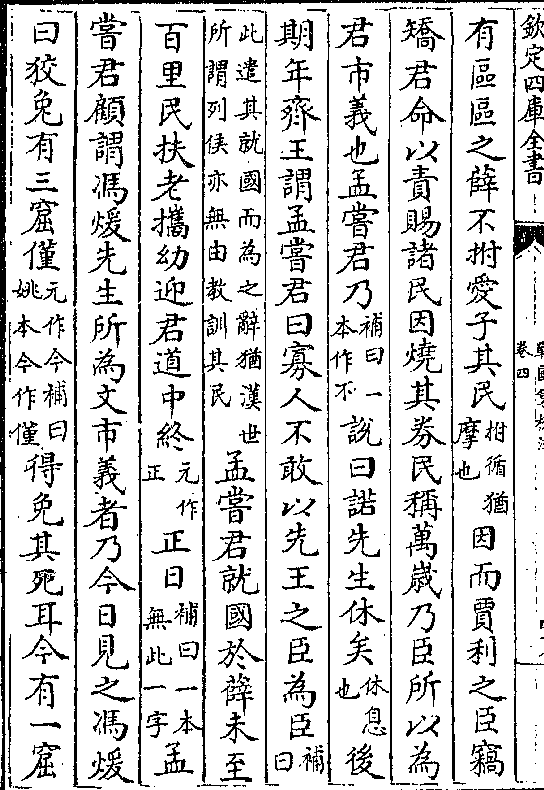 欽定四庫全書
卷四
有區區之薛不拊愛子其民拊循猶摩也因而賈利之臣竊
矯君命以責賜諸民因燒其券民稱萬歲乃臣所以為
君市義也孟嘗君乃補曰一本作不說曰諾先生休矣休息也後
期年齊王謂孟嘗君曰寡人不敢以先王之臣為臣補曰
此遣其就國而為之辭猶漢世所謂列侯亦無由教訓其民孟嘗君就國於薛未至
百里民扶老攜幼迎君道中終元作正正日補曰一本無此一字孟
嘗君顧謂馮煖先生所為文市義者乃今日見之馮煖
曰狡兔有三窟僅元作今補曰姚本今作僅得免其死耳今有一窟